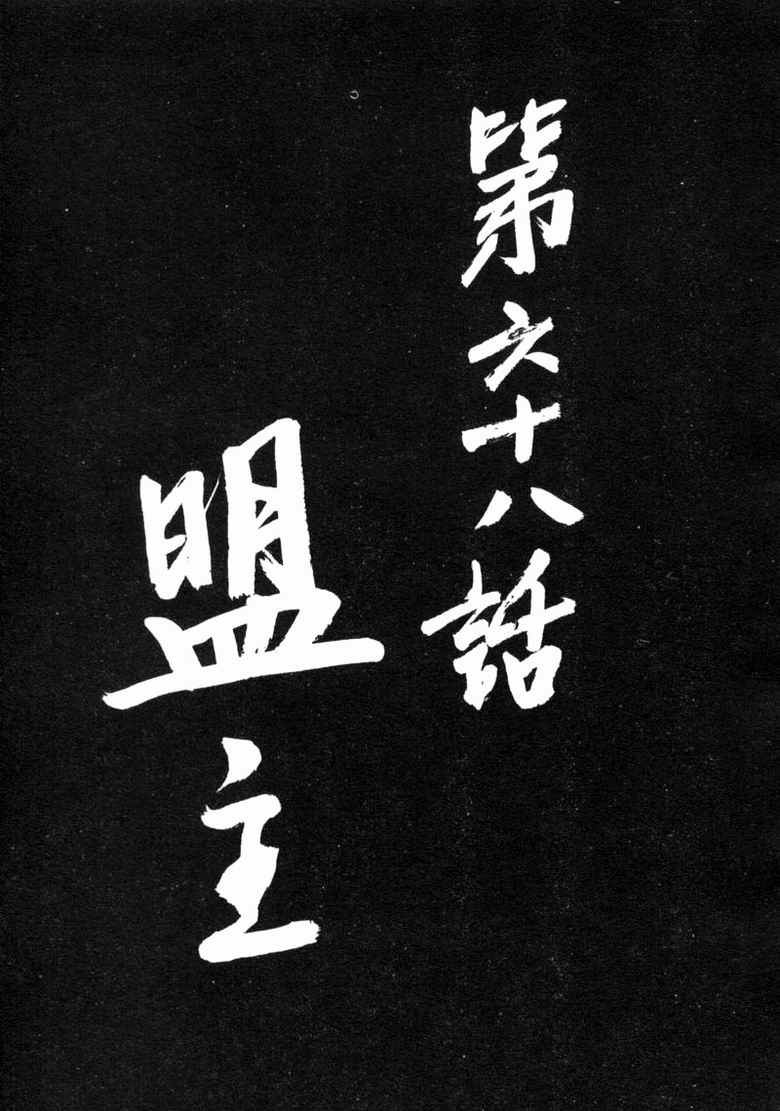 第六十八話
盟主